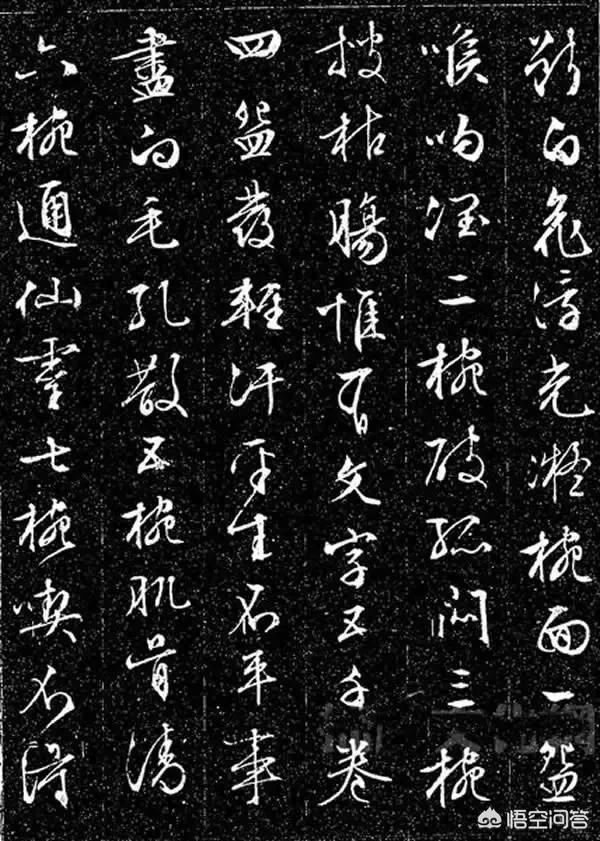 斷白花浮光凝椀面一盌
喉吻潤二椀破孤悶三椀
搜枯腸惟有文字五千卷
四盌發輕汗平生不平事
盡向毛孔散五椀肌骨清
六椀通仙靈七椀喫不得
悟空问答